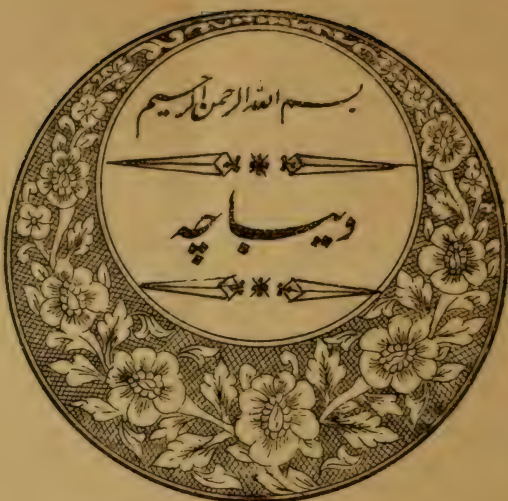 بسم اللہ الرحمن الرحیم
دیباچہ